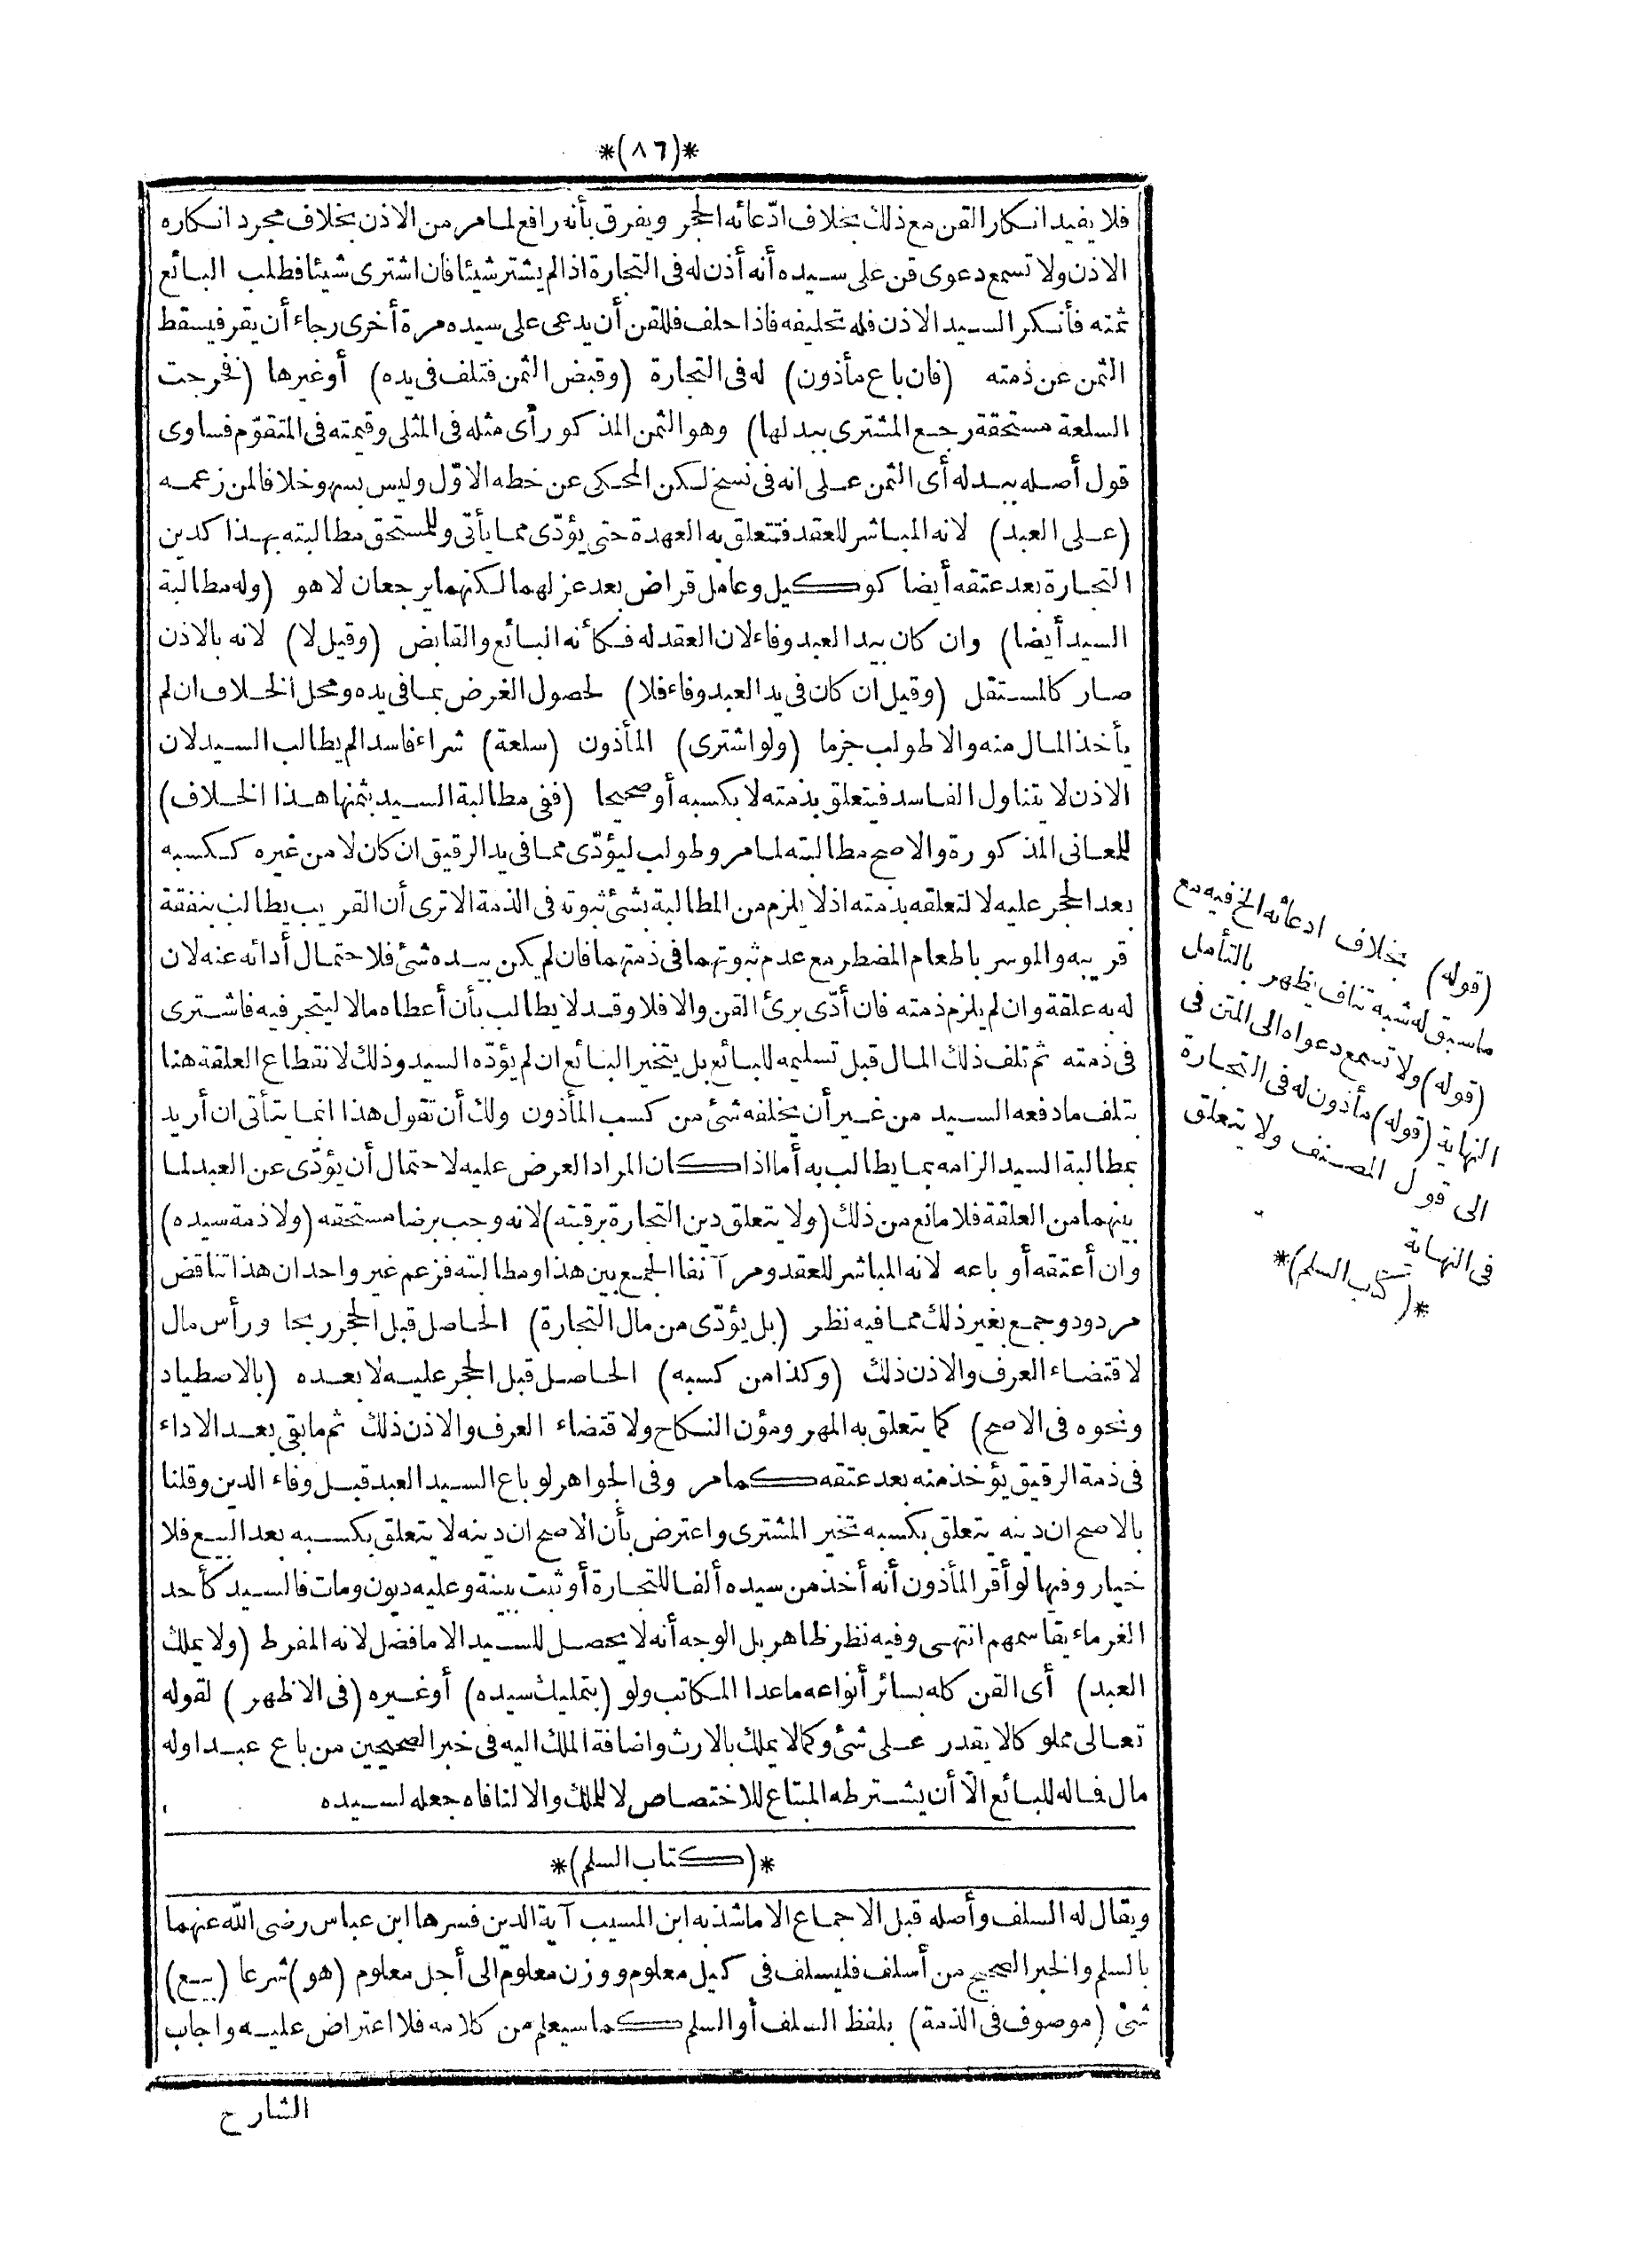 *(٨٦)*
فلا يفيد انكار القن مع ذلك بخلاف ادّعائه الحجر ويفرق بأنه رافع لما مر من الاذن بخلاف مجرد انكاره
الاذن ولا تسمع دعوى قن على سيده أنه أذن له فى التجارة اذا لم يشتر شيئا فان اشترى شيئا فطلب البائع
ثمنه فأنكر السيد الاذن فله تحليفه فاذا حلف فللقن أن يدعى على سيده مرة أخرى رجاء أن يقر فيسقط
الثمن عن ذمته (فان باع مأذون) له فى التجارة (وقبض الثمن فتلف فى يده) أو غيرها (فخرجت
السلعة مستحقة رجع المشترى ببدلها) وهو الثمن المذكور أى مثله فى المثلى وقيمته فى المتقوّم فساوى
قول أصله ببدله أى الثمن على انه فى نسخ لكن المحكى عن خطه الاوّل وليس بسهو خلافا لمن زعمه
(على العبد) لانه المباشر للعقد فتتعلق به العهدة حتى يؤدّى مما يأتى وللمستحق مطالبته بهذا كدين
التجارة بعد عتقه أيضا كوكيل وعامل قراض بعد عزلهما لكنهما يرجعان لا هو (وله مطالبة
السيد أيضا) وان كان بيد العبد وفاء لان العقد له فكأنه البائع والقابض (وقيل لا) لانه بالاذن
صار كالمستقل (وقيل ان كان فى يد العبد وفاء فلا) لحصول الغرض بما فى يده ومحل الخلاف ان لم
يأخذ المال منه والا طولب جزما (ولو اشترى) المأذون (سلعة) شراء فاسدا لم يطالب السيد لان
الاذن لا يتناول الفاسد فيتعلق بذمته لا بكسبه أو صحيحا (ففى مطالبة السيد بثمنها هذا الخلاف)
للمعانى المذكورة والاصح مطالبته لما مر وطولب ليؤدّى مما فى يد الرقيق ان كان لا من غيره ككسبه
بعد الحجر عليه لا لتعلقه بذمته اذ لا يلزم من المطالبة بشئ ثبوته فى الذمة الا ترى أن القريب يطالب بنفقة
قريبه والموسر باطعام المضطر مع عدم ثبوتهما فى ذمتهما فان لم يكن بيده شئ فلاحتمال أدائه عنه لان
له به علقة وان لم يلزم ذمته فان أدّى برئ القن والا فلا وقد لا يطالب بأن أعطاه مالا ليتجر فيه فاشترى
فى ذمته ثم تلف ذلك المال قبل تسليمه للبائع بل يتخير البائع ان لم يؤدّه السيد وذلك لانقطاع العلقة هنا
بتلف ما دفعه السيد من غير أن يخلفه شئ من كسب المأذون ولك أن تقول هذا انما يتأتى ان أريد
بمطالبة السيد الزامه بما يطالب به أما اذا كان المراد العرض عليه لاحتمال أن يؤدّى عن العبد لما
بينهما من العلقة فلا مانع من ذلك (ولا يتعلق دين التجارة برقبته) لانه وجب برضا مستحقه (ولا ذمة سيده)
وان أعتقه أو باعه لانه المباشر للعقد ومر آنفا الجمع بين هذا ومطالبته فزعم غير واحد ان هذا تناقض
مردود وجمع بغير ذلك مما فيه نظر (بل يؤدّى من مال التجارة) الحاصل قبل الحجر ربحا ورأس مال
لاقتضاء العرف والاذن ذلك (وكذا من كسبه) الحاصل قبل الحجر عليه لا بعده (بالاصطياد
ونحوه فى الاصح) كما يتعلق به المهر ومؤن النكاح ولاقتضاء العرف والاذن ذلك ثم ما بقى بعد الاداء
فى ذمة الرقيق يؤخذ منه بعد عتقه كما مر وفى الجواهر لو باع السيد العبد قبل وفاء الدين وقلنا
بالاصح ان دينه يتعلق بكسبه تخير المشترى واعترض بأن الاصح ان دينه لا يتعلق بكسبه بعد البيع فلا
خيار وفيها لو أقر المأذون أنه أخذ من سيده ألفا للتجارة أو ثبت ببينة وعليه ديون ومات فالسيد كأحد
الغرماء يقاسمهم انتهى وفيه نظر ظاهر بل الوجه أنه لا يحصل للسيد الا ما فضل لانه المفرط (ولا يملك
العبد) أى القن كله بسائر أنواعه ما عدا المكاتب ولو (بتمليك سيده) أو غيره (فى الاظهر) لقوله
تعالى مملوكا لا يقدر على شئ وكما لا يملك بالارث واضافة الملك اليه فى خبر الصحيحين من باع عبدا وله
مال فماله للبائع الّا أن يشترطه المبتاع للاختصاص لا للملك والا لنافاه جعله لسيده
*(كتاب السلم)*
ويقال له السلف وأصله قبل الاجماع الا ما شذ به ابن المسيب آية الدين فسرها ابن عباس رضى الله عنهما
بالسلم والخبر الصحيح من أسلف فليسلف فى كيل معلوم ووزن معلوم الى أجل معلوم (هو) شرعا (بيع)
شئ (موصوف فى الذمة) بلفظ السلف أو السلم كما سيعلم من كلامه فلا اعتراض عليه واجاب
الشارح
(قوله) بخلاف ادعائه الخ فيه مع
ما سبق له شبه تناف يظهر بالتأمل
(قوله) ولا تسمع دعواه الى المتن فى
النهاية (قوله) مأذون له فى التجارة
الى قول المصنف ولا يتعلق
فى النهاية
*(كتاب السلم)*